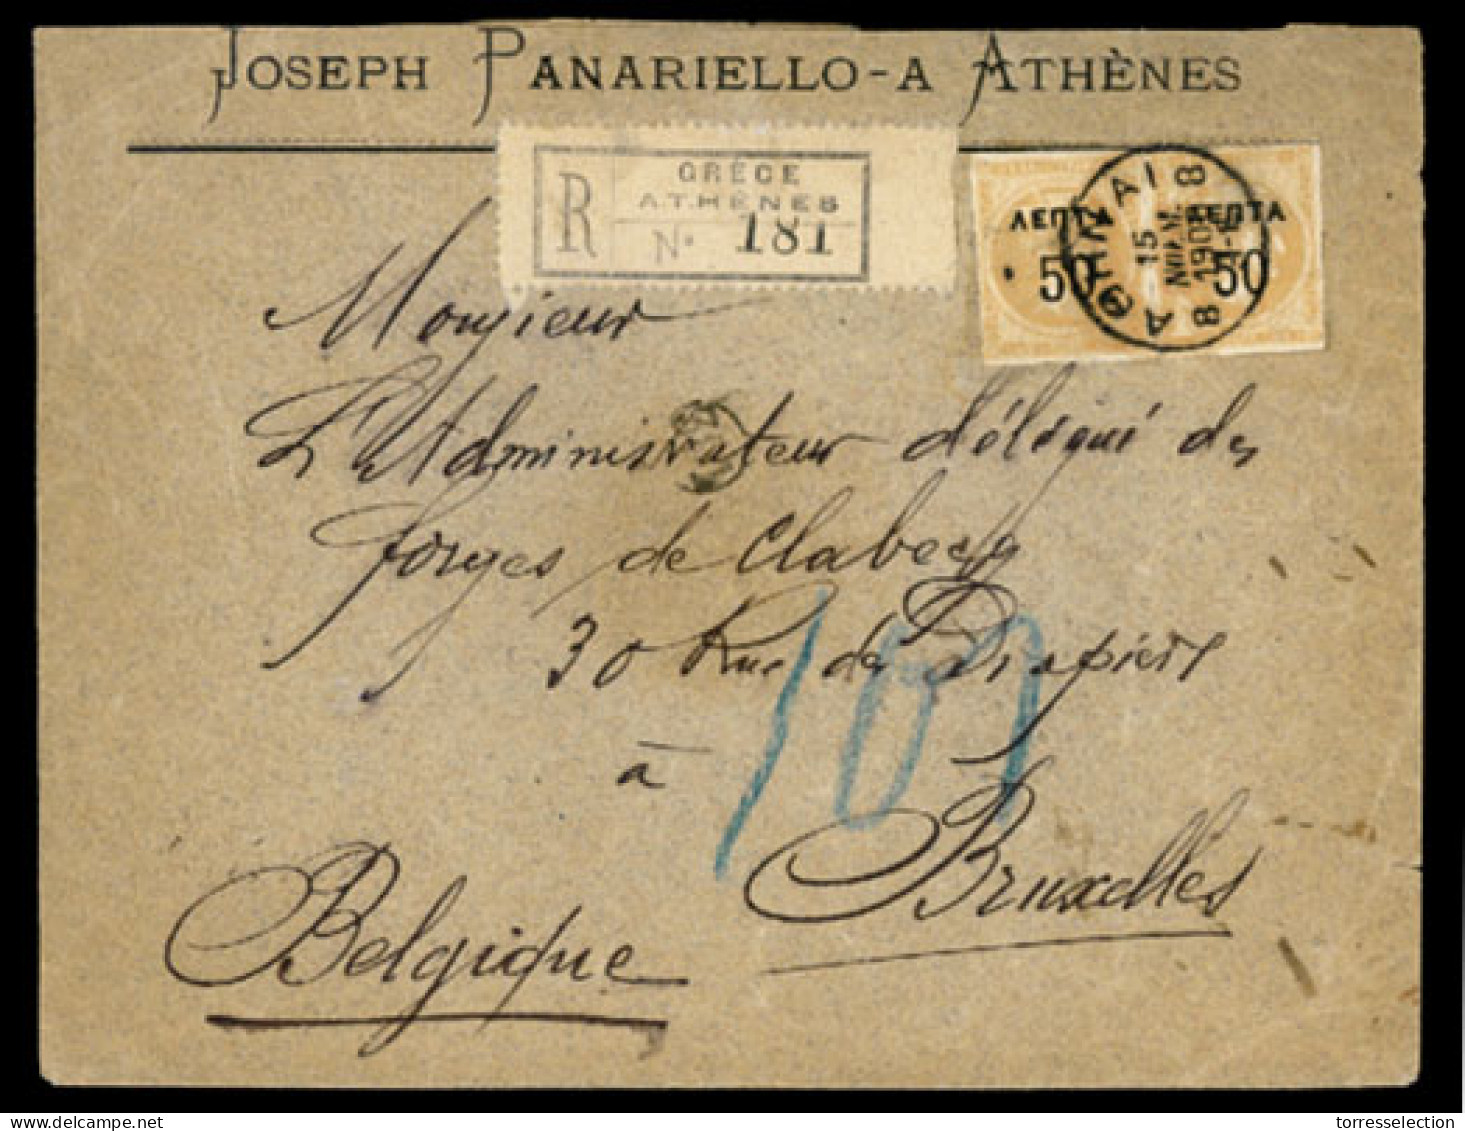 JOSEPH PANARIELLO - A ATHÈNES
R
GRÈCE
ATHÈNES
N° 181
ΛΕΠΤΑ
50
ΛΕΠΤΑ
50
ΑΘΗΝΑΙ
8
15
ΝΟΕΜ.
8
Monsieur
L'Administrateur délégué des
forges de Clabecq
30 Rue des Drapiers
à
Bruxelles
Belgique
torresselection